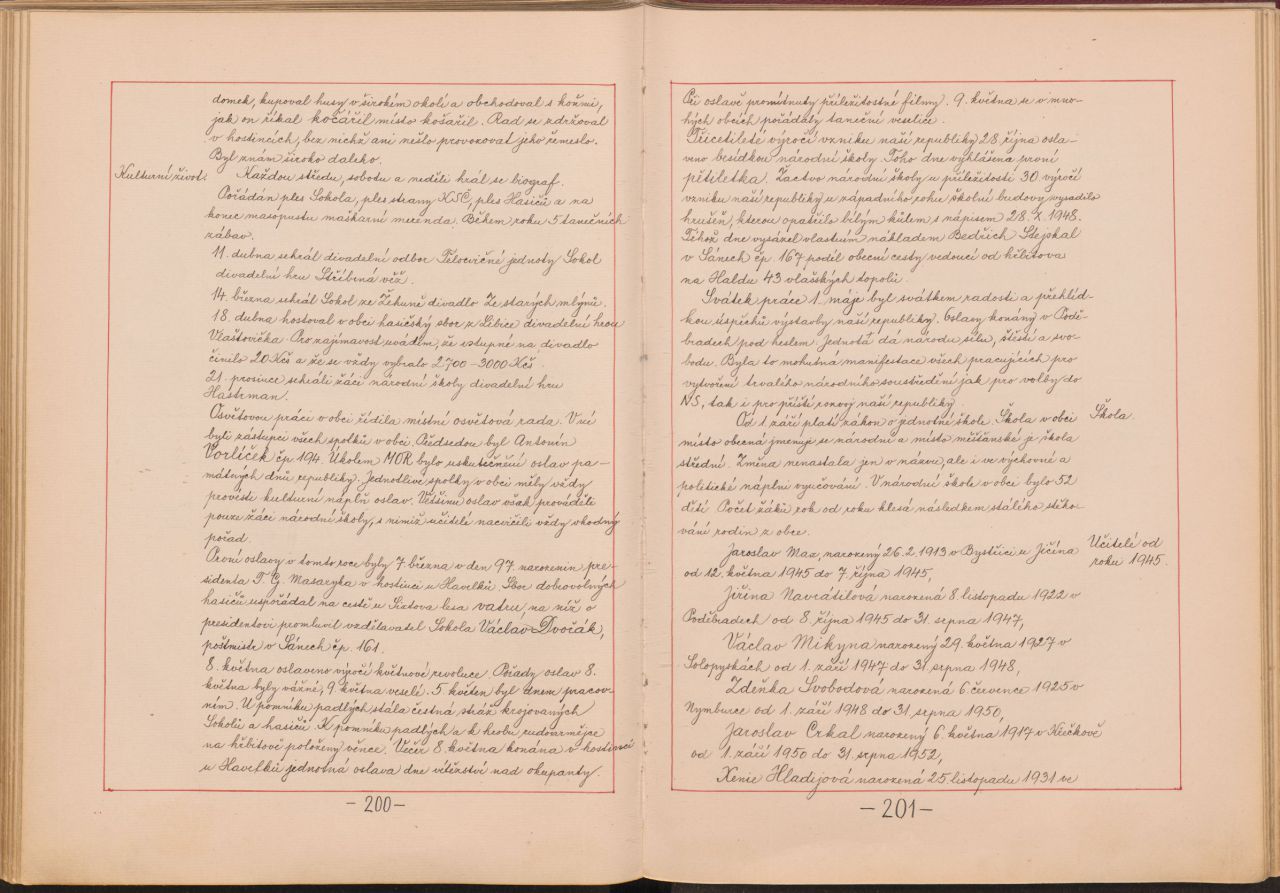 domek, kupoval husy v širokém okolí a obchodoval s kožmi,
jak on říkal kočařil místo kočařil. Rad se zdržoval
v hostincích, bez nichž ani nešlo provozovat jeho řemeslo.
Byl znám široko daleko.
Kulturní život.
Každou středu, sobotu a neděli hrál se biograf.
Pořádán ples Sokola, ples strany KSČ, ples Hasičů a na
konec masopustu maškarní merenda. Během roku 5 tanečních
zábav.
11. dubna sehrál divadelní odbor Tělocvičné jednoty Sokol
divadelní hru Stříbrná věž.
14. března sehrál Sokol ze Žehuně divadlo Ze starých mlýnů.
18. dubna hostoval v obci hasičský sbor z Libice divadelní hrou
Vlaštovička. Pro zajímavost uvádím, že vstupné na divadlo
činilo 20 Kčs a že se vždy vybralo 2700-3000 Kčs.
21. prosince sehráli žáci národní školy divadelní hru
Hastrman.
Osvětovou práci v obci řídila místní osvětová rada. V ní
byli zástupci všech spolků v obci. Předsedou byl Antonín
Vorlíček čp 194. Úkolem MOR bylo uskutečnění oslav pa-
mátných dnů republiky. Jednotlivé spolky v obci měly vždy
provésti kulturní náplň oslav. Většinu oslav však prováděli
pouze žáci národní školy, s nimiž učitelé nacvičili vždy vhodný
pořad.
První oslavy v tomto roce byly 7 března v den 97. narozenin pre-
sidenta T. G. Masaryka v hostinci u Havelků. Sbor dobrovolných
hasičů uspořádal na cestě u Sixtova lesa vatru, na níž o
presidentovi promluvil vzdělavatel Sokola Václav Dvořák,
poštmistr v Sánech čp. 161.
8. května oslaveno výročí květnové revoluce. Pořady oslav 8.
května byly vážné, 9 května veselé. 5 květen byl dnem pracov-
ním. U pomníku padlých stála čestná stráž krojovaných
Sokolů a hasičů. K pomníku padlých a k hrobu rudoarmějce
na hřbitově položeny věnce. Večer 8. května konána v hostinci
u Havelků jednotná oslava dne vítězství nad okupanty.
-200-
Při oslavě promítnuty příležitostné filmy. 9. května se v mno-
hých obcích pořádaly taneční veselice.
Třicetileté výročí vzniku naší republiky 28. října osla-
veno besídkou národní školy. Toho dne vyhlášena první
pětiletka. Žactvo národní školy u příležitosti 30. výročí
vzniku naší republiky u západního rohu školní budovy vysadilo
hrušeň, kterou opatřilo bílým kůlem s nápisem 28. X. 1948.
Téhož dne vysázel vlastním nákladem Bedřich Stejskal
v Sánech čp. 167 podél obecní cesty vedoucí od hřbitova
na Haldu 43 vlašských topolů.
Svátek práce 1. máje byl svátkem radosti a přehlíd-
kou úspěchů výstavby naší republiky. Oslavy konány v Podě-
bradech pod heslem: Jednota dá národu sílu, štěstí a svo-
bodu. Byla to mohutná manifestace všech pracujících pro
vytvoření trvalého národního soustředění jak pro volby do
NS, tak i pro příští rozvoj naší republiky.
Škola.
Od 1 září platí zákon o jednotné škole. Škola v obci
místo obecná jmenuje se národní a místo měšťanské je škola
střední. Změna nenastala jen v názvu, ale i ve výchovné a
politické náplni vyučování. V národní škole v obci bylo 52
dětí. Počet žáků rok od roku klesá následkem stálého stěho-
vání rodin z obce.
Učitelé od
roku 1945.
Jaroslav Max, narozený 26. 2. 1913 v Bystřici u Jičína
od 12. května 1945 do 7. října 1945,
Jiřina Navrátilová narozená 8. listopadu 1922 v
Poděbradech od 8. října 1945 do 31. srpna 1947,
Václav Mikyna narozený 29. května 1927 v
Solopyskách od 1. září 1947 do 31. srpna 1948,
Zdeňka Svobodová narozená 6. července 1925 v
Nymburce od 1. září 1948 do 31. srpna 1950,
Jaroslav Crkal narozený 6. května 1914 v Křečkově
od 1. září 1950 do 31. srpna 1952,
Xenie Hladijová narozená 25. listopadu 1931 ve
-201-